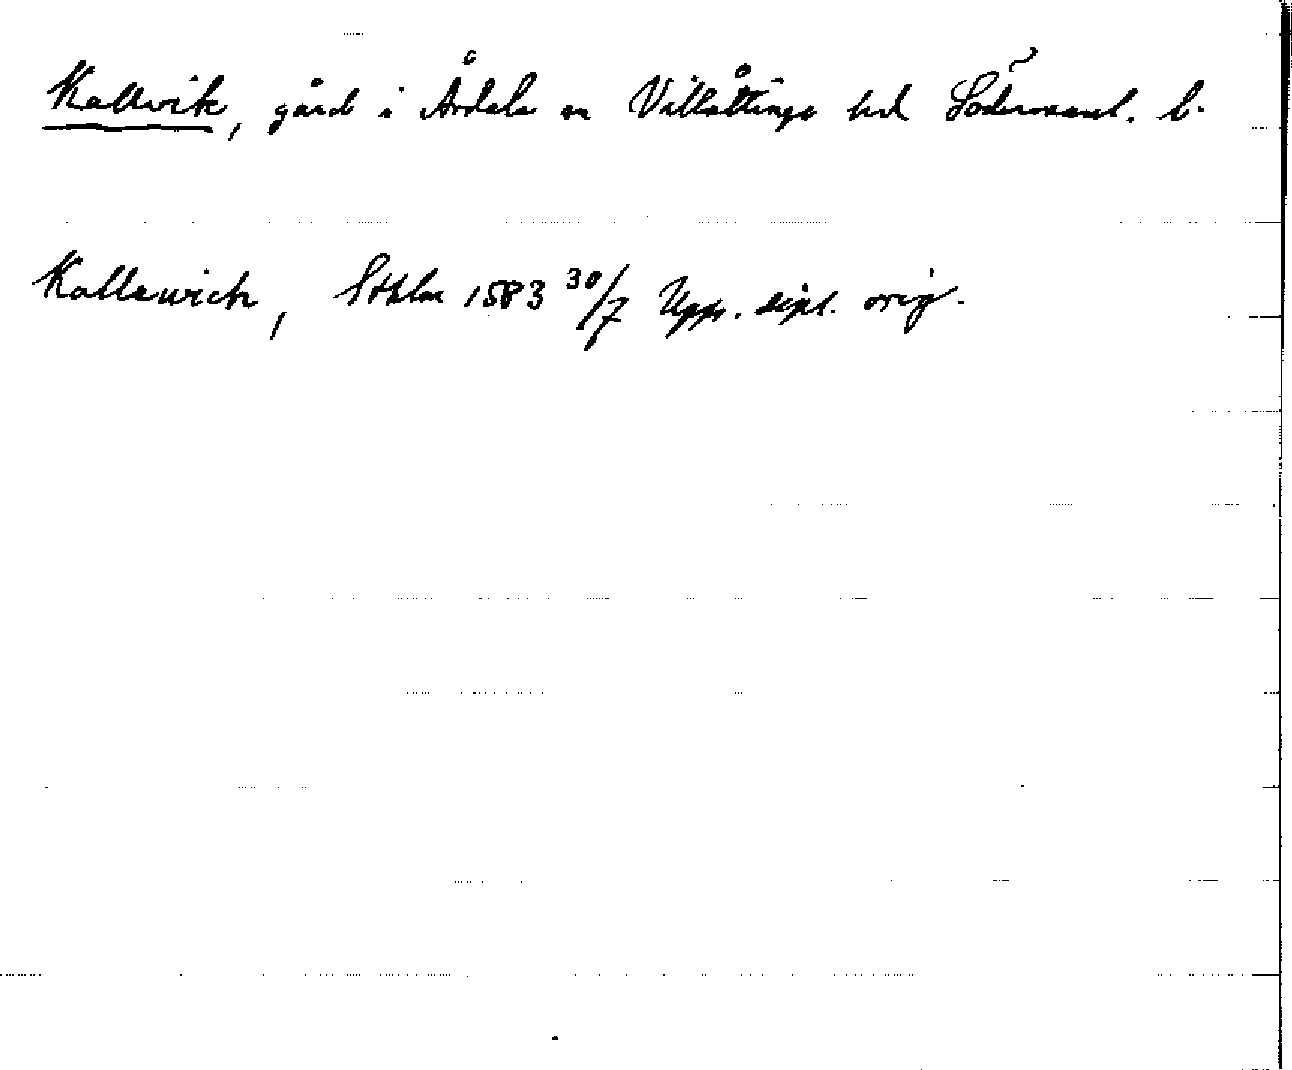 Kallvik, gård i Årdala sn Villåttinge hd Södermanl. l.
Kallewich, Sthlm 1583 30/7 Upps. dipl. orig.